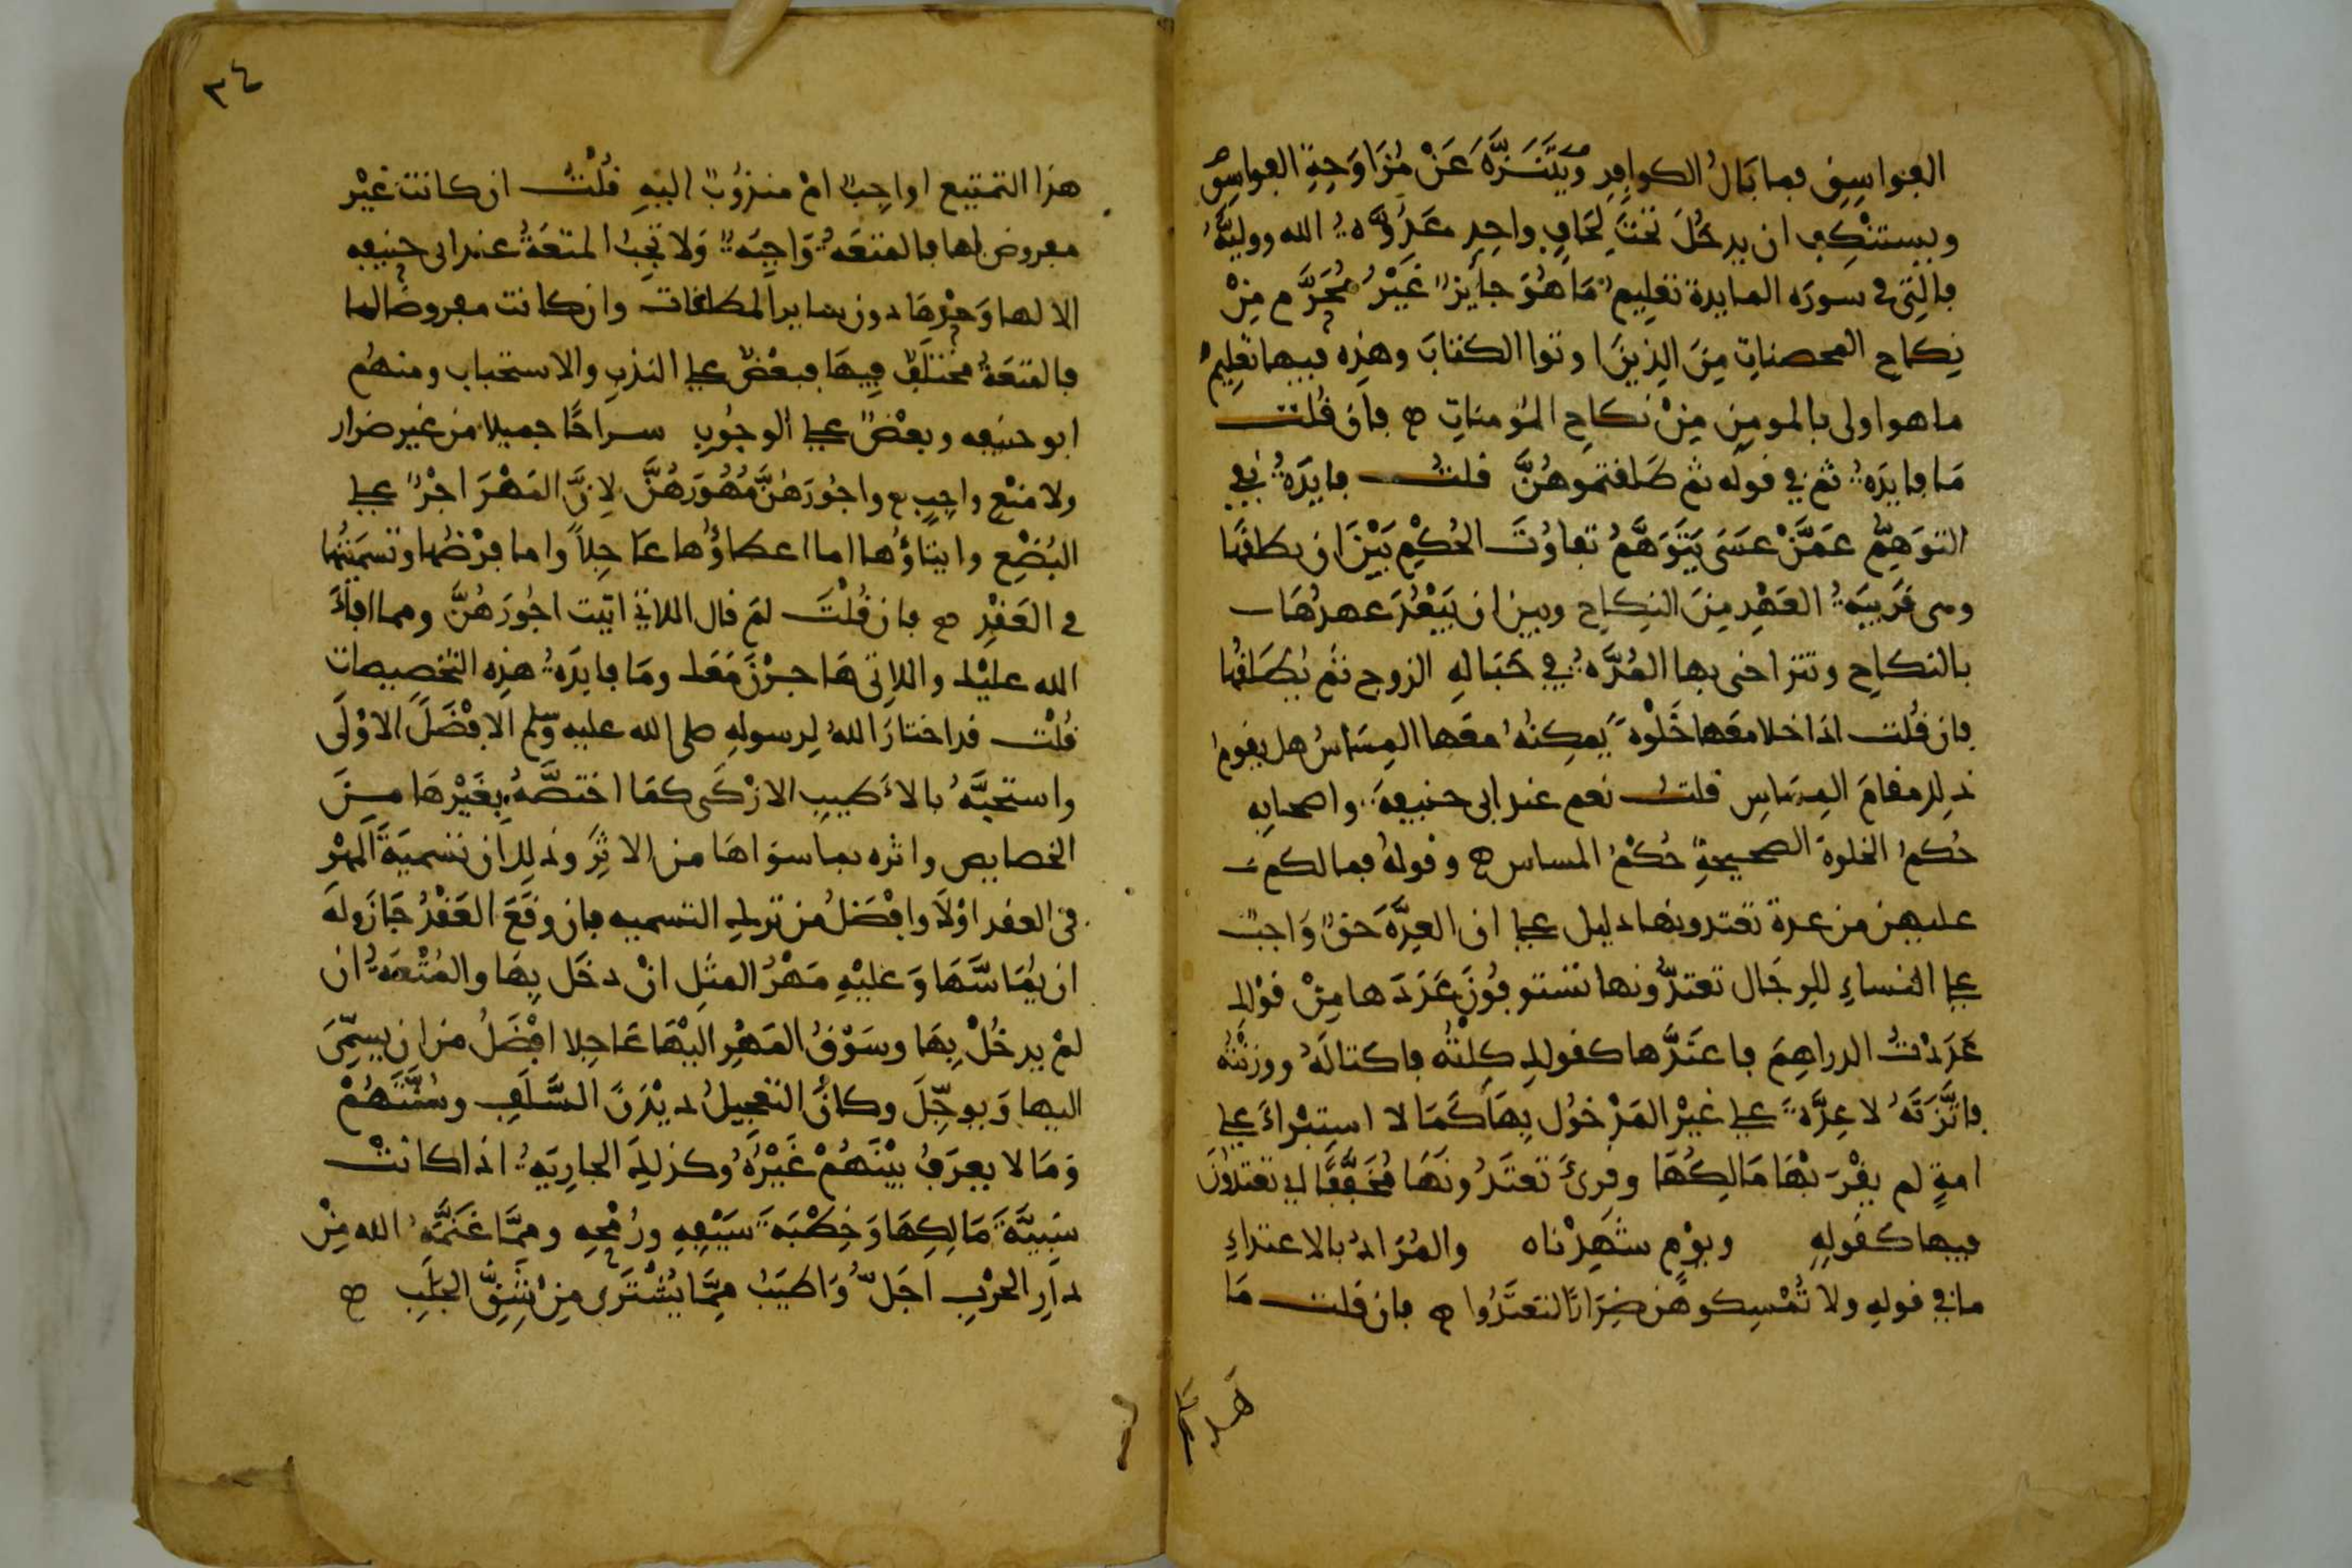 الفواسق فما بال الكوافر ويتنزه عن مزاوجة الفواسق
ويستنكف ان يدخل تحت لحاف واحد عدوة الله ووليه
فالتي في سورة المايدة تعليم ما هو جايز غير محرم من
نكاح المحصنات من الذين اوتوا الكتاب وهذه فيها تعليم
ما هو اولى بالمومن من نكاح المؤمنات ه فان قلت
ما فايدة ثم في قوله ثم طلقتموهن قلت فايدة نفي
التوهم عمن عسى يتوهم تفاوت الحكم بين ان يطلقها
وهي قريبة العهد من النكاح وبين ان يبعد عهدها
بالنكاح وتتراخى بها المدة في حبالة الزوج ثم يطلقها
فان قلت اذا خلا معها خلوة يمكنه معها المساس هل يقوم
ذلك مقام المساس قلت نعم عند ابي حنيفة واصحابه
حكم الخلوة الصحيحة حكم المساس ه وقوله فما لكم
عليهن من عدة تعتدونها دليل على ان العدة حق واجب
على النساء للرجال تعتدونها تستوفون عددها من قولك
عددت الدراهم فاعتدها كقولك كلته فاكتاله ووزنته
فاتزنه لا عدة على غير المدخول بها كما لا استبراء على
امة لم يقربها مالكها وقرئ تعتدونها مخففا اي تعتدون
فيها كقوله ويوم شهدناه والمراد بالاعتداء
ما في قوله ولا تمسكوهن ضرارا لتعتدوا ه فان قلت ما
هذا
٣٤
هذا التمتيع اواجب ام مندوب اليه قلت ان كانت غير
مفروض لها فالمتعة واجبة ولا تجب المتعة عند ابي حنيفه
الا لها وحدها دون ساير المطلقات وان كانت مفروضا لها
فالمتعة مختلف فيها فبعض على الندب والاستحباب ومنهم
ابو حنيفه وبعض على الوجوب سراحا جميلا من غير ضرار
ولا منع واجب ه واجورهن مهورهن لان المهر اجر على
البضع وايتاؤها اما اعطاؤها عاجلا واما فرضها وتسميتها
في العقد ه فان قلت لم قال اللاتي اتيت اجورهن ومما افاء
الله عليك واللاتي هاجرن معك وما فايدة هذه التخصيصات
قلت قد اختار الله لرسوله صلى الله عليه وسلم الافضل الاولى
واستحبه بالاطيب الازكى كما اختصه بغيرها من
الخصايص واثره بما سواها من الاثر وذلك ان تسمية المهر
في العقد اولا وافضل من ترك التسميه فان وقع العقد جاز وله
ان يماسها وعليه مهر المثل ان دخل بها والمتعة ان
لم يدخل بها وسوق المهر اليها عاجلا افضل من ان يسمى
اليها ويوجل وكان التعجيل ديدن السلف وسنتهم
وما لا يعرف بينهم غيره وكذلك الجارية اذا كانت
سبية مالكها وخطبة سيفه ورمحه ومما غنمه الله من
دار الحرب احل واطيب مما يشترى من شق الجلب ه